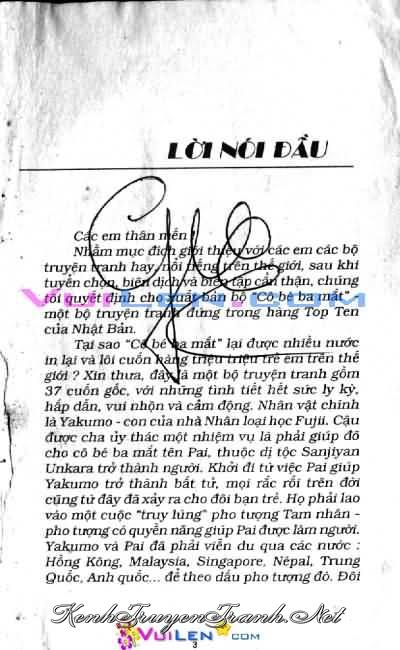 LỜI NÓI ĐẦU
Các em thân mến !
Nhằm mục đích giới thiệu với các em các bộ
truyện tranh hay, nổi tiếng trên thế giới, sau khi
tuyển chọn, biên dịch và biên tập cẩn thận, chúng
tôi quyết định cho xuất bản bộ "Cô bé ba mắt",
VUILEN.COM
một bộ truyện tranh đứng trong hàng Top Ten
của Nhật Bản.
Tại sao "Cô bé ba mắt" lại được nhiều nước
in lại và lôi cuốn hàng triệu triệu trẻ em trên thế
giới ? Xin thưa, đây là một bộ truyện tranh gồm
37 cuốn gốc, với những tình tiết hết sức ly kỳ,
hấp dẫn, vui nhộn và cảm động. Nhân vật chính
là Yakumo - con của nhà Nhân loại học Fujii. Cậu
được cha ủy thác một nhiệm vụ là phải giúp đỡ
cho cô bé ba mắt tên Pai, thuộc dị tộc Sanjiyan
Unkara trở thành người. Khởi đi từ việc Pai giúp
Yakumo trở thành bất tử, mọi rắc rối trên đời
cũng từ đây đã xảy ra cho đôi bạn trẻ. Họ phải lao
vào một cuộc "truy lùng" pho tượng Tam nhãn -
pho tượng có quyền năng giúp Pai được làm người.
Yakumo và Pai đã phải viễn du qua các nước :
Hồng Kông, Malaysia, Singapore, Népal, Trung
Quốc, Anh quốc... để theo dấu pho tượng đó. Đôi
KenhTruyenTranh.Net
VUILEN.COM
3